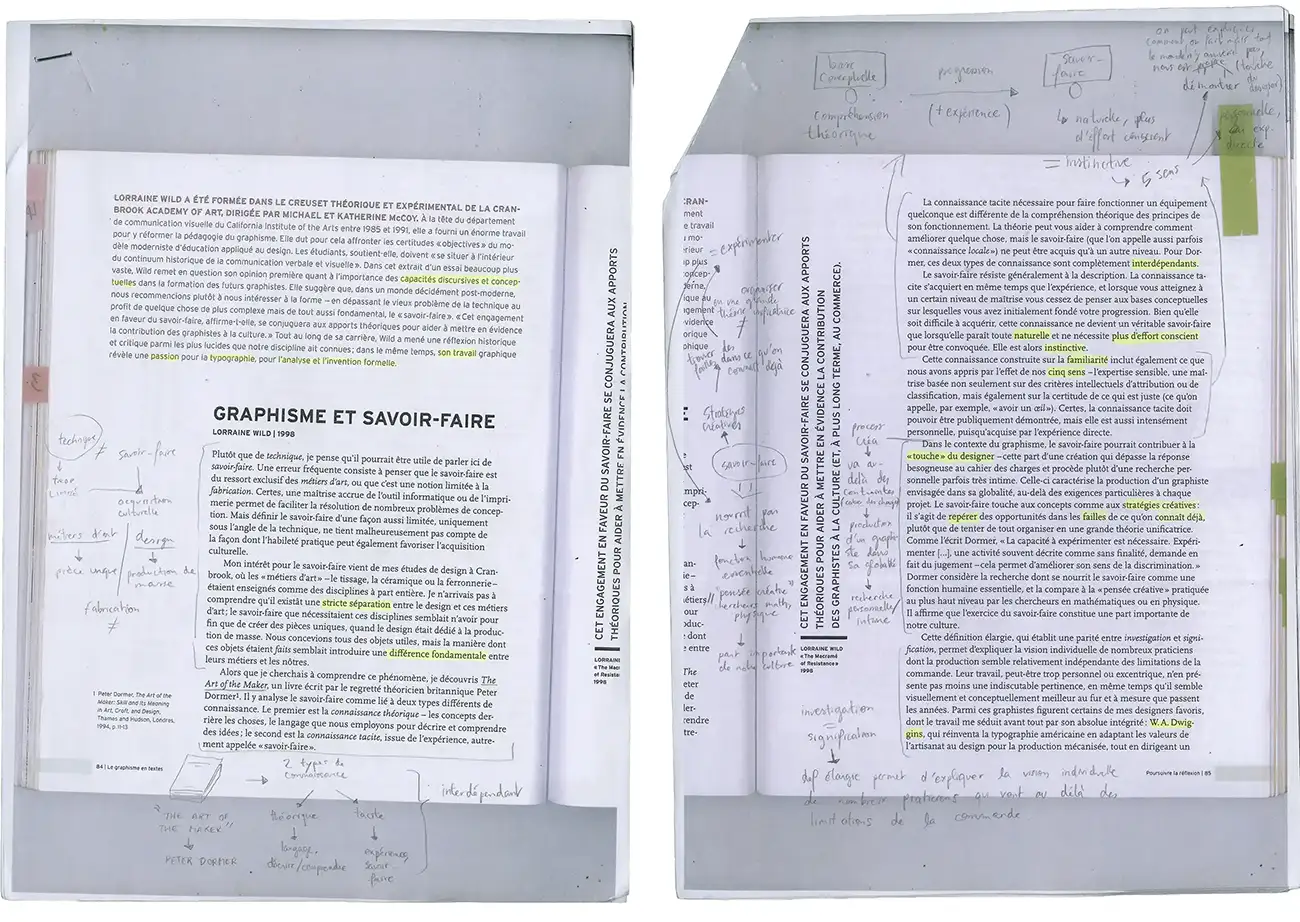 LORRAINE WILD A ÉTÉ FORMÉE DANS LE CREUSET THÉORIQUE ET EXPÉRIMENTAL DE LA CRAN-
BROOK ACADEMY OF ART, DIRIGÉE PAR MICHAEL ET KATHERINE McCOY. À la tête du département
de communication visuelle du California Institute of the Arts entre 1985 et 1991, elle a fourni un énorme travail
pour y réformer la pédagogie du graphisme. Elle dut pour cela affronter les certitudes « objectives » du mo-
dèle moderniste d'éducation appliqué au design. Les étudiants, soutient-elle, doivent « se situer à l'intérieur
du continuum historique de la communication verbale et visuelle ». Dans cet extrait d'un essai beaucoup plus
vaste, Wild remet en question son opinion première quant à l'importance des capacités discursives et concep-
tuelles dans la formation des futurs graphistes. Elle suggère que, dans un monde décidément post-moderne,
nous recommencions plutôt à nous intéresser à la forme – en dépassant le vieux problème de la technique au
profit de quelque chose de plus complexe mais de tout aussi fondamental, le « savoir-faire ». « Cet engagement
en faveur du savoir-faire, affirme-t-elle, se conjuguera aux apports théoriques pour aider à mettre en évidence
la contribution des graphistes à la culture. » Tout au long de sa carrière, Wild a mené une réflexion historique
et critique parmi les plus lucides que notre discipline ait connues; dans le même temps, son travail graphique
révèle une passion pour la typographie, pour l'analyse et l'invention formelle.
GRAPHISME ET SAVOIR-FAIRE
LORRAINE WILD | 1998
Plutôt que de technique, je pense qu'il pourrait être utile de parler ici de
savoir-faire. Une erreur fréquente consiste à penser que le savoir-faire est
du ressort exclusif des métiers d'art, ou que c'est une notion limitée à la
fabrication. Certes, une maîtrise accrue de l'outil informatique ou de l'impri-
merie permet de faciliter la résolution de nombreux problèmes de concep-
tion. Mais définir le savoir-faire d'une façon aussi limitée, uniquement
sous l'angle de la technique, ne tient malheureusement pas compte de
la façon dont l'habileté pratique peut également favoriser l'acquisition
culturelle.
Mon intérêt pour le savoir-faire vient de mes études de design à Cran-
brook, où les « métiers d'art » – le tissage, la céramique ou la ferronnerie –
étaient enseignés comme des disciplines à part entière. Je n'arrivais pas à
comprendre qu'il existât une stricte séparation entre le design et ces métiers
d'art; le savoir-faire que nécessitaient ces disciplines semblait n'avoir pour
fin que de créer des pièces uniques, quand le design était dédié à la produc-
tion de masse. Nous concevons tous des objets utiles, mais la manière dont
ces objets étaient faits semblait introduire une différence fondamentale entre
leurs métiers et les nôtres.
Alors que je cherchais à comprendre ce phénomène, je découvris The
Art of the Maker, un livre écrit par le regretté théoricien britannique Peter
Dormer¹. Il y analyse le savoir-faire comme lié à deux types différents de
connaissance. Le premier est la connaissance théorique – les concepts der-
rière les choses, le langage que nous employons pour décrire et comprendre
des idées; le second est la connaissance tacite, issue de l'expérience, autre-
ment appelée « savoir-faire ».
1 Peter Dormer, The Art of the
Maker: Skill and Its Meaning
in Art, Craft, and Design,
Thames and Hudson, Londres,
1994, p.11-13
84 | Le graphisme en textes
technique ≠ savoir-faire
trop
limité
acquisition
culturelle
métiers d'art / design
pièce unique
production de
masse
fabrication
≠
2 types de
connaissance
interdépendant
"THE ART OF
THE MAKER"
PETER DORMER
théorique
langage,
décrire/comprendre
tacite
expérience,
savoir-
faire
CET ENGAGEMENT EN FAVEUR DU SAVOIR-FAIRE SE CONJUGUERA AUX APPORTS
THÉORIQUES POUR AIDER À METTRE EN ÉVIDENCE LA CONTRIBUTION
LORRAINE
« The Macra
of Resistan
1998
base
conceptuelle
compréhension
théorique
progression
(+ expérience)
savoir-
faire
naturelle, plus
d'effort conscient
= instinctive
5 sens
démontrer
La connaissance tacite nécessaire pour faire fonctionner un équipement
quelconque est différente de la compréhension théorique des principes de
son fonctionnement. La théorie peut vous aider à comprendre comment
améliorer quelque chose, mais le savoir-faire (que l'on appelle aussi parfois
« connaissance locale ») ne peut être acquis qu'à un autre niveau. Pour Dor-
mer, ces deux types de connaissance sont complètement interdépendants.
Le savoir-faire résiste généralement à la description. La connaissance ta-
cite s'acquiert en même temps que l'expérience, et lorsque vous atteignez à
un certain niveau de maîtrise vous cessez de penser aux bases conceptuelles
sur lesquelles vous avez initialement fondé votre progression. Bien qu'elle
soit difficile à acquérir, cette connaissance ne devient un véritable savoir-faire
que lorsqu'elle paraît toute naturelle et ne nécessite plus d'effort conscient
pour être convoquée. Elle est alors instinctive.
Cette connaissance construite sur la familiarité inclut également ce que
nous avons appris par l'effet de nos cinq sens – l'expertise sensible, une maî-
trise basée non seulement sur des critères intellectuels d'attribution ou de
classification, mais également sur la certitude de ce qui est juste (ce qu'on
appelle, par exemple, « avoir un œil »). Certes, la connaissance tacite doit
pouvoir être publiquement démontrée, mais elle est aussi intensément
personnelle, puisqu'acquise par l'expérience directe.
Dans le contexte du graphisme, le savoir-faire pourrait contribuer à la
« touche » du designer – cette part d'une création qui dépasse la réponse
besogneuse au cahier des charges et procède plutôt d'une recherche per-
sonnelle parfois très intime. Celle-ci caractérise la production d'un graphiste
envisagée dans sa globalité, au-delà des exigences particulières à chaque
projet. Le savoir-faire touche aux concepts comme aux stratégies créatives:
il s'agit de repérer des opportunités dans les failles de ce qu'on connaît déjà,
plutôt que de tenter de tout organiser en une grande théorie unificatrice.
Comme l'écrit Dormer, « La capacité à expérimenter est nécessaire. Expéri-
menter [...], une activité souvent décrite comme sans finalité, demande en
fait du jugement – cela permet d'améliorer son sens de la discrimination. »
Dormer considère la recherche dont se nourrit le savoir-faire comme une
fonction humaine essentielle, et la compare à la « pensée créative » pratiquée
au plus haut niveau par les chercheurs en mathématiques ou en physique.
Il affirme que l'exercice du savoir-faire constitue une part importante de
notre culture.
Cette définition élargie, qui établit une parité entre investigation et signi-
fication, permet d'expliquer la vision individuelle de nombreux praticiens
dont la production semble relativement indépendante des limitations de la
commande. Leur travail, peut-être trop personnel ou excentrique, n'en pré-
sente pas moins une indiscutable pertinence, en même temps qu'il semble
visuellement et conceptuellement meilleur au fur et à mesure que passent
les années. Parmi ces graphistes figurent certains de mes designers favoris,
dont le travail me séduit avant tout par son absolue intégrité: W. A. Dwig-
gins, qui réinventa la typographie américaine en adaptant les valeurs de
l'artisanat au design pour la production mécanisée, tout en dirigeant un
Poursuivre la réflexion | 85
CET ENGAGEMENT EN FAVEUR DU SAVOIR-FAIRE SE CONJUGUERA AUX APPORTS
THÉORIQUES POUR AIDER À METTRE EN ÉVIDENCE LA CONTRIBUTION
DES GRAPHISTES À LA CULTURE (ET, À PLUS LONG TERME, AU COMMERCE).
LORRAINE WILD
« The Macramé
of Resistance »
1998
= expérimenter
organiser
en une grande
théorie unificatrice
≠
trouver des
failles dans ce qu'on
connait déjà
Stratégies
créatives
savoir-faire
nourrit par
la recherche
fonction humaine
essentielle
"pensée créative"
chercheurs math,
physique
part importante
de notre culture
process
créa
va au-
delà des
contraintes
production
d'un graphi-
ste dans
sa globalité
recherche
personnelle/
intime
investigation
=
signification
def élargie permet d'expliquer la vision individuelle
de nombreux praticiens qui vont au delà des
limitations de la commande